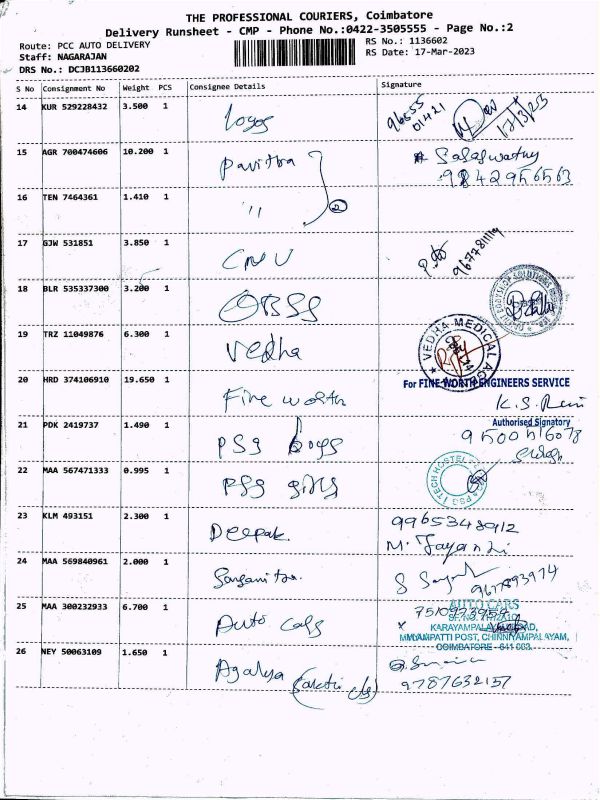 THE PROFESSIONAL COURIERS, Coimbatore
Delivery Runsheet - CMP - Phone No.:0422-3505555 - Page No.:2
Route: PCC AUTO DELIVERY
RS No.: 1136602
Staff: NAGARAJAN
RS Date: 17-Mar-2023
DRS No.: DCJB113660202
S No Consignment No Weight PCS Consignee Details Signature
14 KUR 529228432 3.500 1 Logos 96555 01421 17/3/23
15 AGR 700474606 10.200 1 Pavithra
# Saraswathy
9842956563
16 TEN 7464361 1.410 1 " 2
17 GJW 531851 3.850 1 CNU 
18 BLR 535337300 3.200 1 OBSS
19 TRZ 11049876 6.300 1 Vedha VEDHA MEDICAL
20 HRD 374106910 19.650 1 Fine worth
For FINE WORTH ENGINEERS SERVICE
K.S.
Authorised Signatory
21 PDK 2419737 1.490 1 PSG Boys
22 MAA 567471333 0.995 1 PSG girls
TECH HOSTEL
23 KLM 493151 2.300 1 Deepak. 9965348912
M. Jayanthi
24 MAA 569840961 2.000 1
25 MAA 300232933 6.700 1 Auto cars
AUTO CARS
MYLAMPATTI POST, CHINNIYAMPALAYAM,
COIMBATORE - 641 003.
26 NEY 50063109 1.650 1 Agalya
9787632157